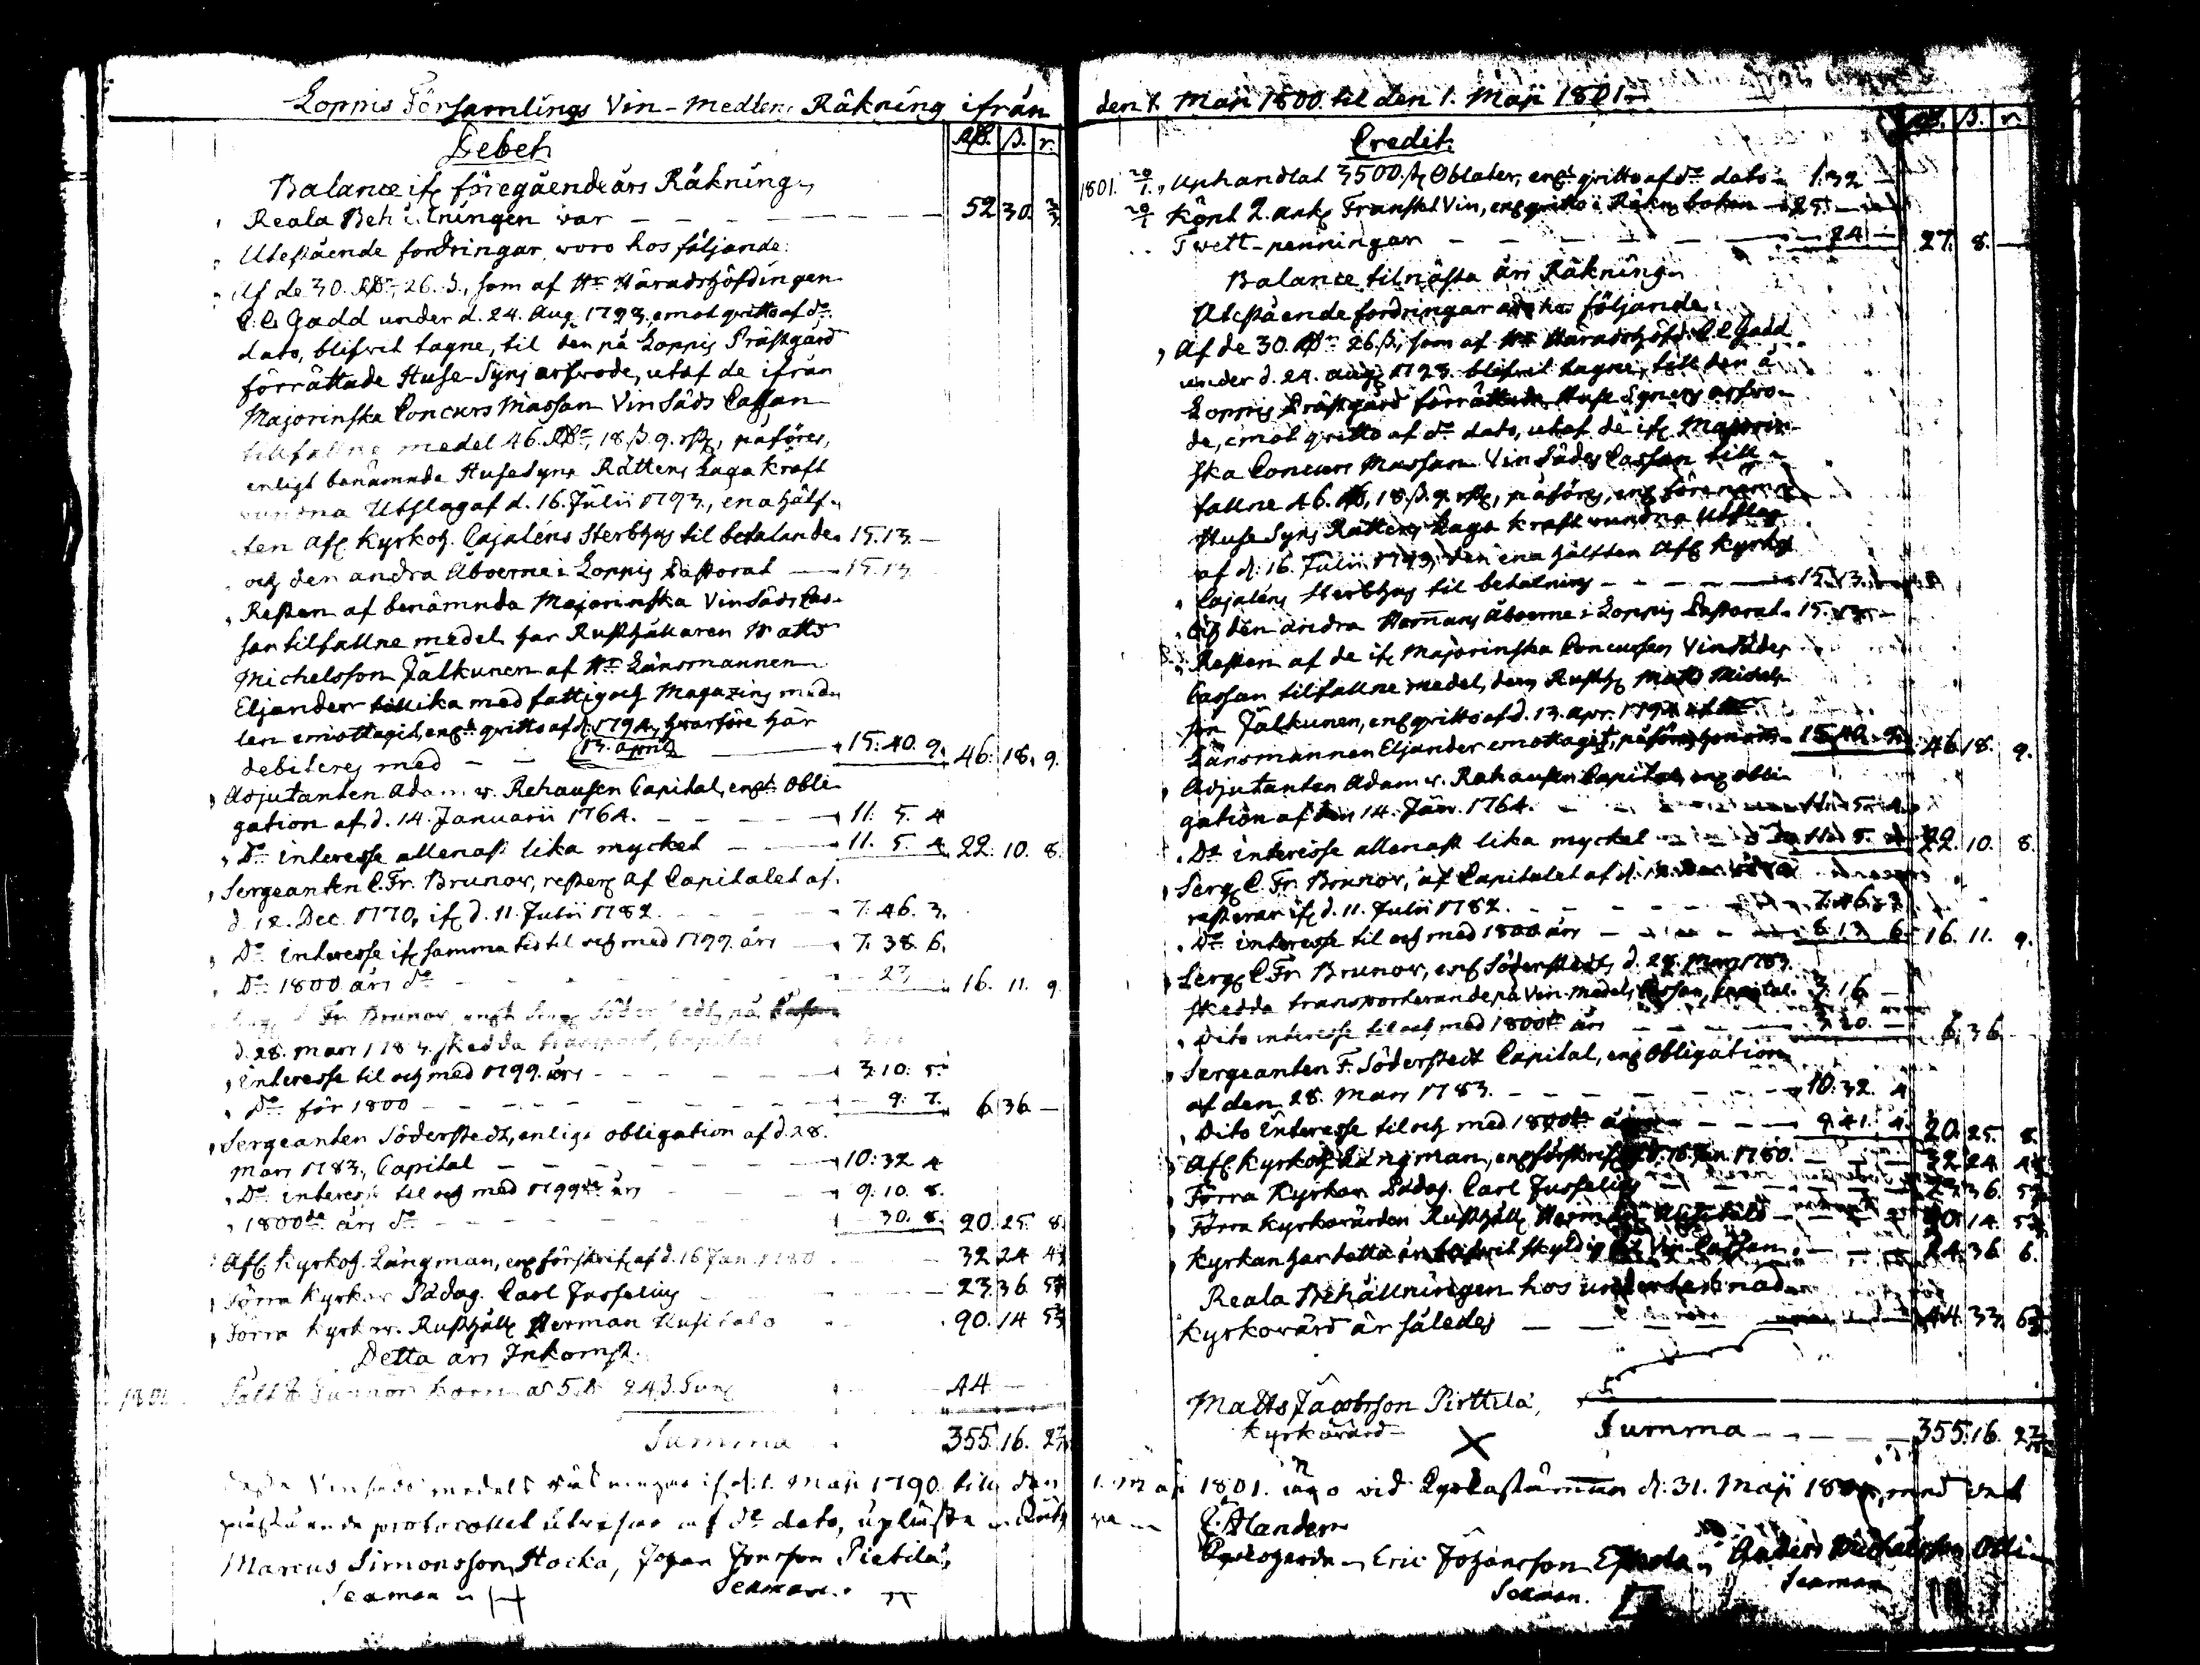 Loppis Församlings Vin-Medlens Räkning ifrån den 1. Maji 1800 til den 1. Maji 1801.
Debet
Rd. ß. r.
Balance if. föregående års Räkning,
Reala Behållningen var 52 30.
Utestående fordringar woro hos följande:
Af de 30. Rd. 26. ß., som af Hr Häradshöfdingen
C. C. Gadd under d. 24. Aug. 1793. emot qvitto af do
dato, blifvit tagne, til den på Loppis Prästgård
förrättade Huse-Syns arfvode, utaf de ifrån
Majorinska Concurs Massan VinSäds Cassan
tillfallne medel 46. Rd. 18. ß. 9. r., påföres,
enligt benämnde HuseSyns Rättens Laga kraft
vundna Utslag af d. 16. Julii 1793., ena hälf-
ten Afl. Kyrkoh. Cajaléns Sterbhus til betalande 15.13. —
och den andra Åboerne i Loppis Pastorat — 15.13
Resten af benämnda Majorinska VinSäds Cas-
san tilfallne medel har Rusthållaren Matts
Michelsson Jälkunen af Hr Länsmannen
Eljander tillika med fattig och Magazins med-
len emottagit, engt qvitto af d. 1794, hwarföre här
13. April
debiteres med — — 15. 40. 9. 46. 18. 9.
Adjutanten Adam v. Rehausen Capital, engt Obli-
gation af d. 14. Januarii 1764. — 11. 5. 4
Do interesse allenast lika mycket — 11. 5. 4 22. 10. 8.
Sergeanten C. Fr. Brunow, rester. af Capitalet af
d. 12. Dec. 1770, if. d. 11. Julii 1782. — 7. 46. 3.
Do interesse if. samma tid til och med 1799. års — 7. 38. 6.
Do 1800 års do — 23 16. 11. 9
Fr. Brunow
d. 28. Mars 1783. skedda transport, Capital
interesse til och med 1799. års — 3. 10. 5.
Do för 1800 — 9. 7. 6 36 —
Sergeanten Söderstedt, enligt obligation af d. 28.
Mars 1783., Capital — 10: 32 4
Do interesse til och med 1799de års — 9. 10. 8.
1800de års do — 30. 8. 20 25. 8
Afl. Kyrkoh. Långman, eng. förskrif. af d. 16 Jan. 1780 — 32 24
Förra Kyrkov. Pädag. Carl Jusselius — 23 36
Förra Kyrkov. Rusthåll. Herman Husitalo 90. 14
Detta års Inkomst.
1801. 44 —
Summa 355. 16.
Credit
Rd. ß. r.
1801. 20/1. Uphandlat 3500. st. Oblater, engt qvitto af do dato 1. 32 —
20/1 Köpt 2. ank. Franskt Vin, eng. qvitto i Räkn. boken — 25. —
Twett-penningar — 24 — 27. 8. —
Balance til nästa års Räkning.
Utestående fordringar äro hos följande:
Af de 30. Rd. 26. ß., som af Hr Häradshöfd. C. C. Gadd
under d. 24. Aug. 1793 blifvit tagne, till den å
Loppis Prästgård förrättade Huse Synens arfvo-
de, emot qvitto af do dato, utaf de if. Majorin-
ska Concurs Massan VinSädes Cassan till-
fallne 46. Rd. 18. ß. 9. r., påföres, eng. förenämnde
Huse Syns Rättens Laga kraft vundna Utslag
af d. 16. Julii 1793, den ena hälften Afl. Kyrkoh.
Cajaléns Sterbhus til betalning — 15. 13.
och den andra Hemmans Åboerne i Loppis Pastorat. 15. 13. —
Resten af de if. Majorinska Concursen VinSädes
Cassan tilfallne medel, dem Rusth. Matts Michels-
son Jälkunen, eng. qvitto af d. 13. Apr. 1794 af Hr
Länsmannen Eljander emottagit, påföres honom — 15. 40. 9. 46 18. 9.
Adjutanten Adam v. Rehausen Capital, eng. obli-
gation af den 14. Jan. 1764. — 11. 5. 4.
Do interesse allenast lika mycket — 11. 5. 4 22. 10. 8.
Serg. C. Fr. Brunow, af Capitalet af d. 12. Dec. 1770
resterar if. d. 11. Julii 1782. — 7. 46. 3
Do interesse til och med 1800 års — 8. 13. 6 16. 11. 9.
Serg. C. Fr. Brunow, eng. Söderstedts d. 28. Mars 1783
skedda transporterande på Vin-Medels Cassan, Capital. 3. 16 —
Dito interesse til och med 1800de års — 3. 20. — 6. 36 —
Sergeanten F. Söderstedt Capital, eng. Obligation
af den 28. Mars 1783. — 10. 32. 4
Dito Interesse til och med 1800de års — 9. 41. 4. 20. 25. 8.
Afl. Kyrkoh. Långman, eng. förskrif. af d. 16 Jan. 1780. — 32 24
Förra Kyrkov. Pädag. Carl Jusselius — 23. 36.
Förra Kyrkovärden Rusthåll. Herman Husitalo — 90. 14.
Kyrkan har detta år blifvit skyldig til Vin-Cassan — 24. 36 6.
Reala Behållningen hos undertecknad
Kyrkovärd är således — 44. 33.
Matts Jacobsson Pirttilä,
Kyrkovärd X
Summa — 355. 16.
Vinsäds medels räkningar if. d. 1. Maji 1790. till den 1. Maji 1801. wid Kyrkostämman d. 31. Maji med
protocollet utvisar af do dato, upläste
E. Alander
Kyrkoherde
Marcus Simonsson Hocka, Johan Jonsson Pietilä, Eric Johansson Anders Michelsson
Sexman Sexman. Sexman. Sexman